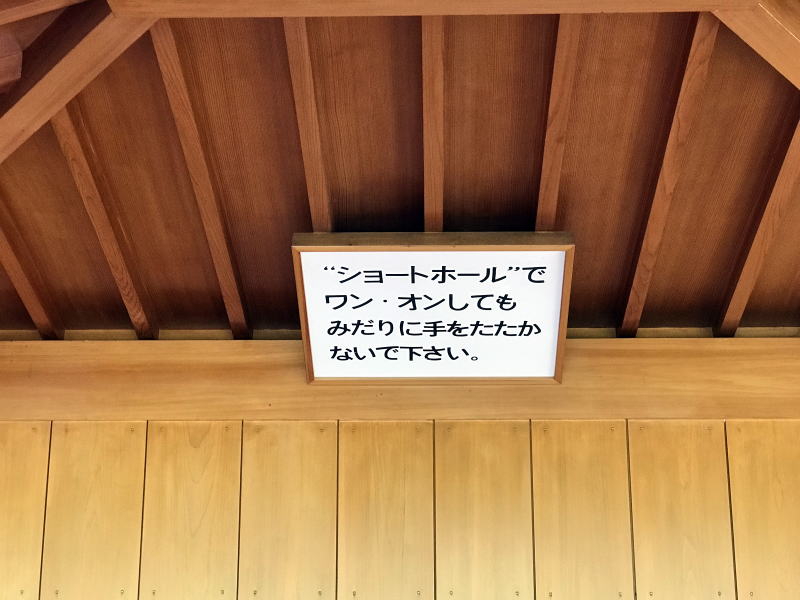 “ショートホール”で
ワン・オンしても
みだりに手をたたか
ないで下さい。